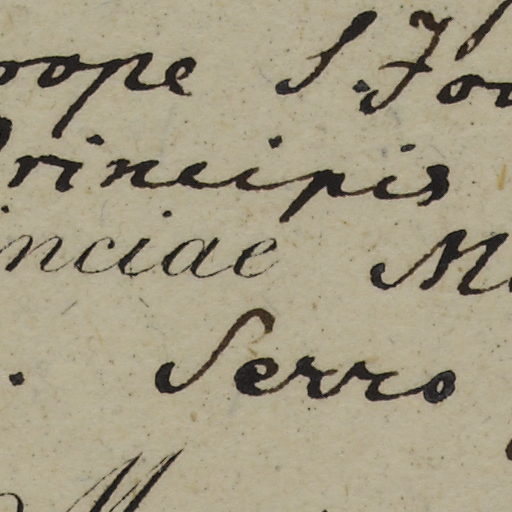 prope S. Joa
Principis
inciae M
. Serro
M